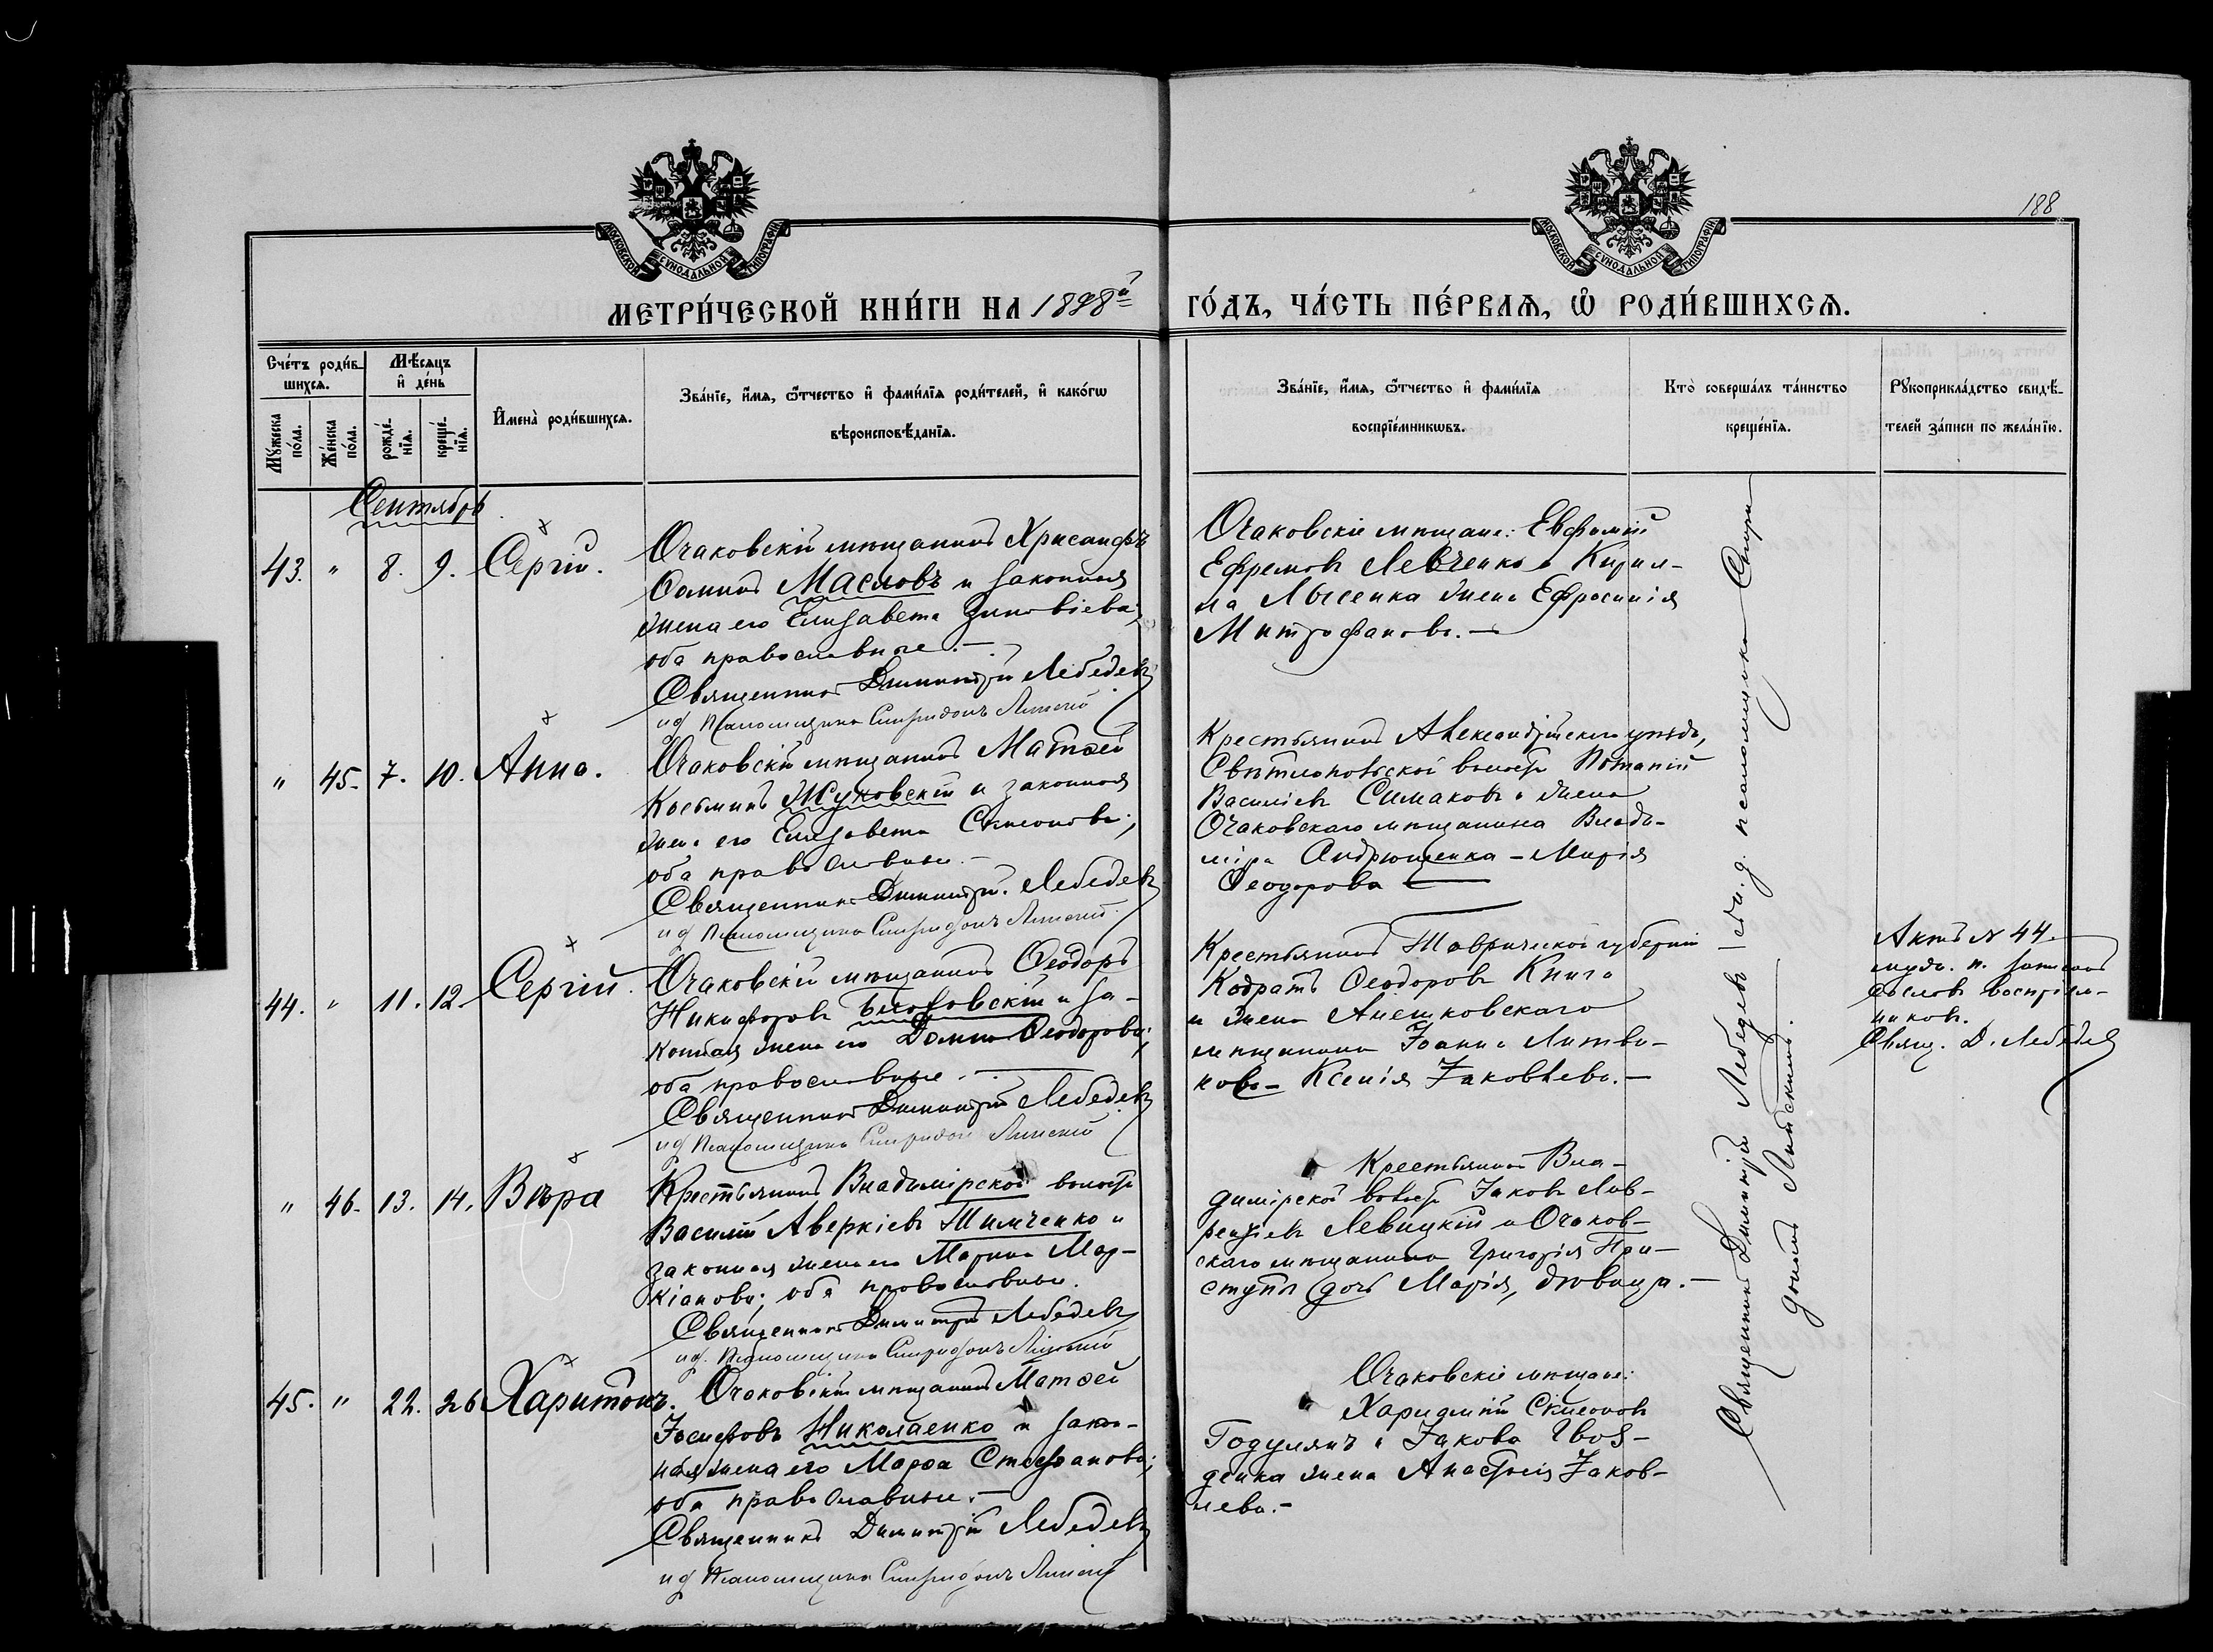 188
МОСКОВСКОЙ СѴНОДАЛЬНОЙ ТИПОГРАФІИ
МОСКОВСКОЙ СѴНОДАЛЬНОЙ ТИПОГРАФІИ
МЕТРИ́ЧЕСКОЙ КНИ́ГИ НА 1898й ГО́ДЪ, ЧА́СТЬ ПЕ́РВАѦ, Ѽ РОДИ́ВШИХСѦ.
Сче́тъ роди́вшихсѧ.
Мꙋ́жеска по́ла.
Же́нска по́ла.
Мѣ́сѧцъ и҆ де́нь
рожде́нїѧ.
креще́нїѧ.
И҆мена̀ роди́вшихсѧ.
Зва́нїе, и҆́мѧ, ѻ҆́тчество и҆ фами́лїѧ роди́телей, и҆ како́гѡ
вѣроисповѣ́данїѧ.
Зва́нїе, и҆́мѧ, ѻ҆́тчество и҆ фами́лїѧ
воспрїе́мникѡвъ.
Кто̀ соверша́лъ та́инство
креще́нїѧ.
Рꙋкоприкла́дство свидѣ́-
телей за́писи по жела́нїю.
Сентябрь
43. " 8. 9. Сергій.
Очаковскій мѣщанинъ Хрисанфъ
Ѳоминъ Масловъ и законная
жена его Елисавета Зиновіева;
оба православные.
Священникъ Димитрій Лебедевъ
и д Псаломщика Спиридонъ
Очаковскіе мѣщане: Евфимій
Ефремовъ Левченко и Кирил-
ла Лысенка жена Ефросинія
Митрофанова.
" 45. 7. 10. Анна.
Очаковскій мѣщанинъ Матѳей
Косьминъ Жуковскій и законная
жена его Елисавета Симеонова;
оба православные.
Священникъ Димитрій Лебедевъ
и д Псаломщика Спиридонъ
Крестьянинъ Александрійскаго уѣзда,
Свѣтлопольской волости Потапій
Василіевъ Симаковъ и жена
Очаковскаго мѣщанина Влади-
міра Андрющенка - Марія
Ѳеодорова
44. " 11. 12. Сергій.
Очаковскій мѣщанинъ Ѳеодоръ
Никифоровъ и за-
конная жена его Домна Ѳеодорова;
оба православные.
Священникъ Димитрій Лебедевъ
и д Псаломщика Спиридонъ
Крестьянинъ Таврической губерніи
Кодратъ Ѳеодоровъ Книга
и жена Алешковскаго
мѣщанина Іоанна Литви-
нова - Ксенія Іаковлева.
Актъ № 44.
записанъ
воспріем-
никовъ.
Свящ. Д. Лебедевъ
" 46. 13. 14. Вѣра
Крестьянинъ Владимірской волости
Василій Аверкіевъ Тимченко и
законная жена его Марина Мар-
кіанова; оба православные.
Священникъ Димитрій Лебедевъ
и д. Псаломщика Спиридонъ
Крестьянинъ Вла-
димірской волости Іаковъ Лав-
рентіевъ Левицкій и Очаков-
скаго мѣщанина Григорія При-
ступы дочь Марія, дѣвица.
45. " 22. 26 Харитонъ.
Очаковскій мѣщанинъ Матѳей
Іосифовъ Николаенко и закон-
ная жена его Марѳа Стефанова;
оба православные.
Священникъ Димитрій Лебедевъ
и д Псаломщика Спиридонъ
Очаковскіе мѣщане:
Харлампій Симеоновъ
Годулянъ и Іакова Гвоз-
денка жена Анастасія Іаков-
лева.
Священникъ Димитрій Лебедевъ съ и. д. псаломщика Спири-
дономъ